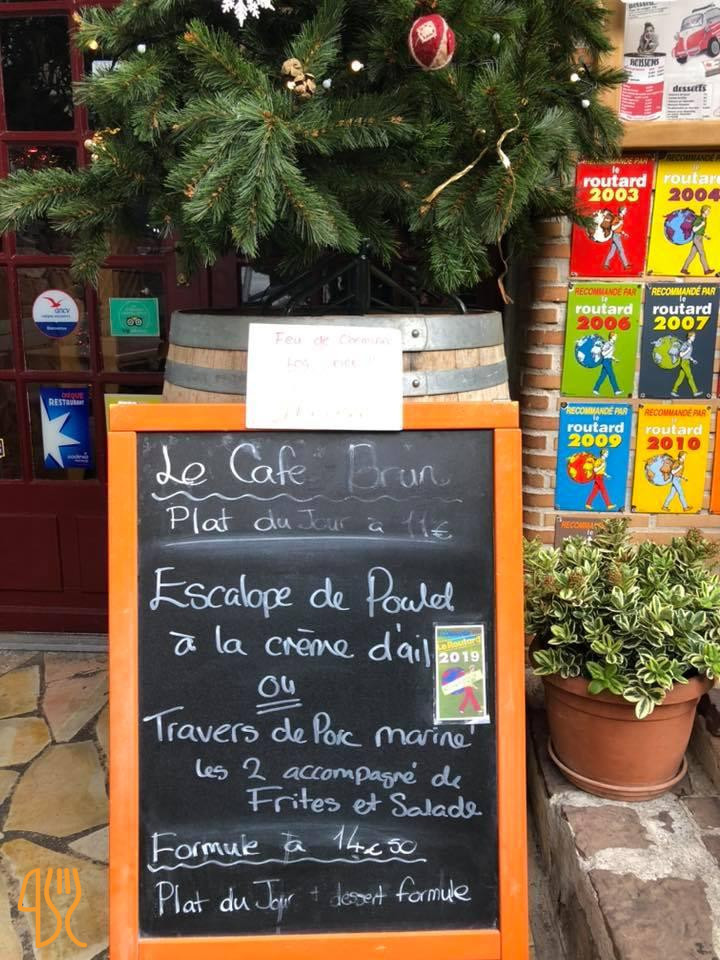 BOISSONS
desserts
RECOMMANDÉ PAR
le
routard
2003
RECOMMANDÉ PAR
le
routard
2004
RECOMMANDÉ PAR
le
routard
2006
RECOMMANDÉ PAR
le
routard
2007
RECOMMANDÉ PAR
le
routard
2009
RECOMMANDÉ PAR
le
routard
2010
RECOMMANDÉ
ancv
CHÈQUE
RESTAURANT
sodexo
Feu de Cheminée
Le Café Brun
Plat du Jour à 11€
Escalope de Poulet
à la crème d'ail
ou
Le Routard
2019
Travers de Porc mariné
les 2 accompagné de
Frites et Salade
Formule à 14€50
Plat du Jour + dessert formule